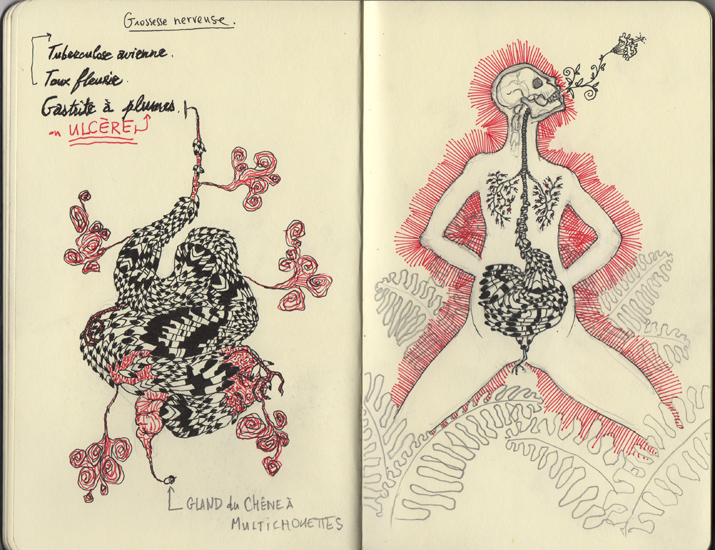 Grossesse nerveuse.
Tuberculose avienne.
Toux fleurie.
Gastrite à plumes.
ou ULCÈRE
GLAND du CHÊNE à
MULTICHOUETTES